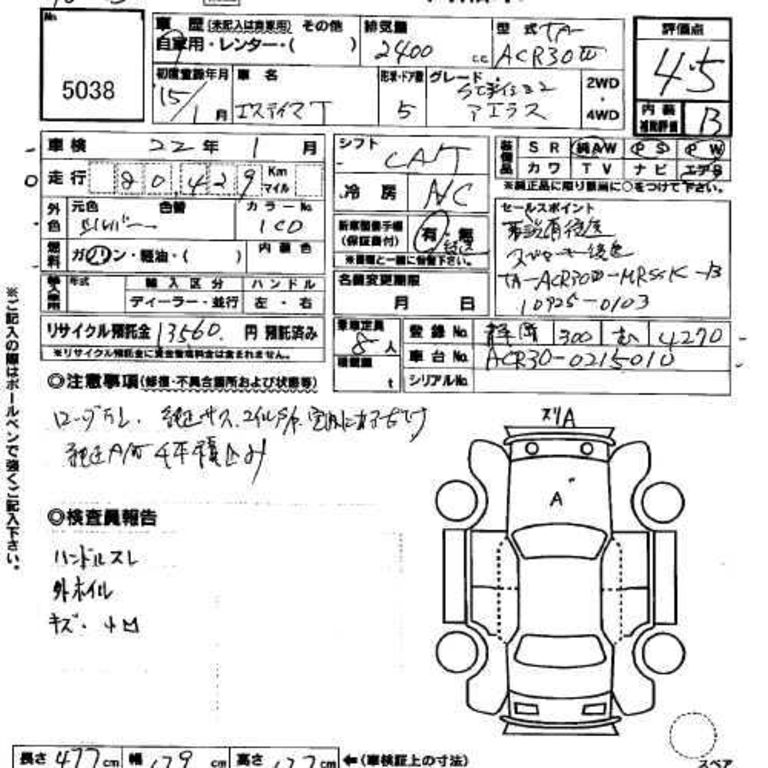 No.
5038
車歴 (未記入は自家用) その他
自家用・レンター・( )
排気量
2400 cc
型式 TA-
ACR30W
評価点
4.5
内装
補助評価 B
初度登録年月
15/1月
車名
エスティマT
形状・ドア数
5
グレード
アエラス
2WD
・
4WD
車検 22年 1月
走行 80,429 Km
マイル
シフト
CAT
冷房 A/C
装備品
SR 純AW PS PW
カワ TV ナビ エアB
※純正品に限り該当に○をつけて下さい。
外色
元色 色替 カラーNo.
シルバー 1C0
燃料
ガソリン・軽油・( )
内装色
新車整備手帳
(保証書付)
有・無
※書類と一緒に御預け下さい。
セールスポイント
スペアキー後送
TA-ACR30W-MRSSK-B
10925-0103
輸入車用
年式 輸入区分 ハンドル
ディーラー・並行 左・右
名義変更期限
月 日
リサイクル預託金 13560. 円 預託済み
※リサイクル預託金に資金管理料金は含まれません。
乗車定員
8人
積載量
t
登録No. 静岡 300 む 4270
車台No. ACR30-0215010
シリアルNo.
◎注意事項(修復・不具合箇所および状態等)
純正A/W 4本積込み
スリA
A
◎検査員報告
ハンドルスレ
外ホイル
キズ・凹
※ご記入の際はボールペンで強くご記入下さい。
長さ 477cm 幅 179cm 高さ 177cm ←(車検証上の寸法)
スペア